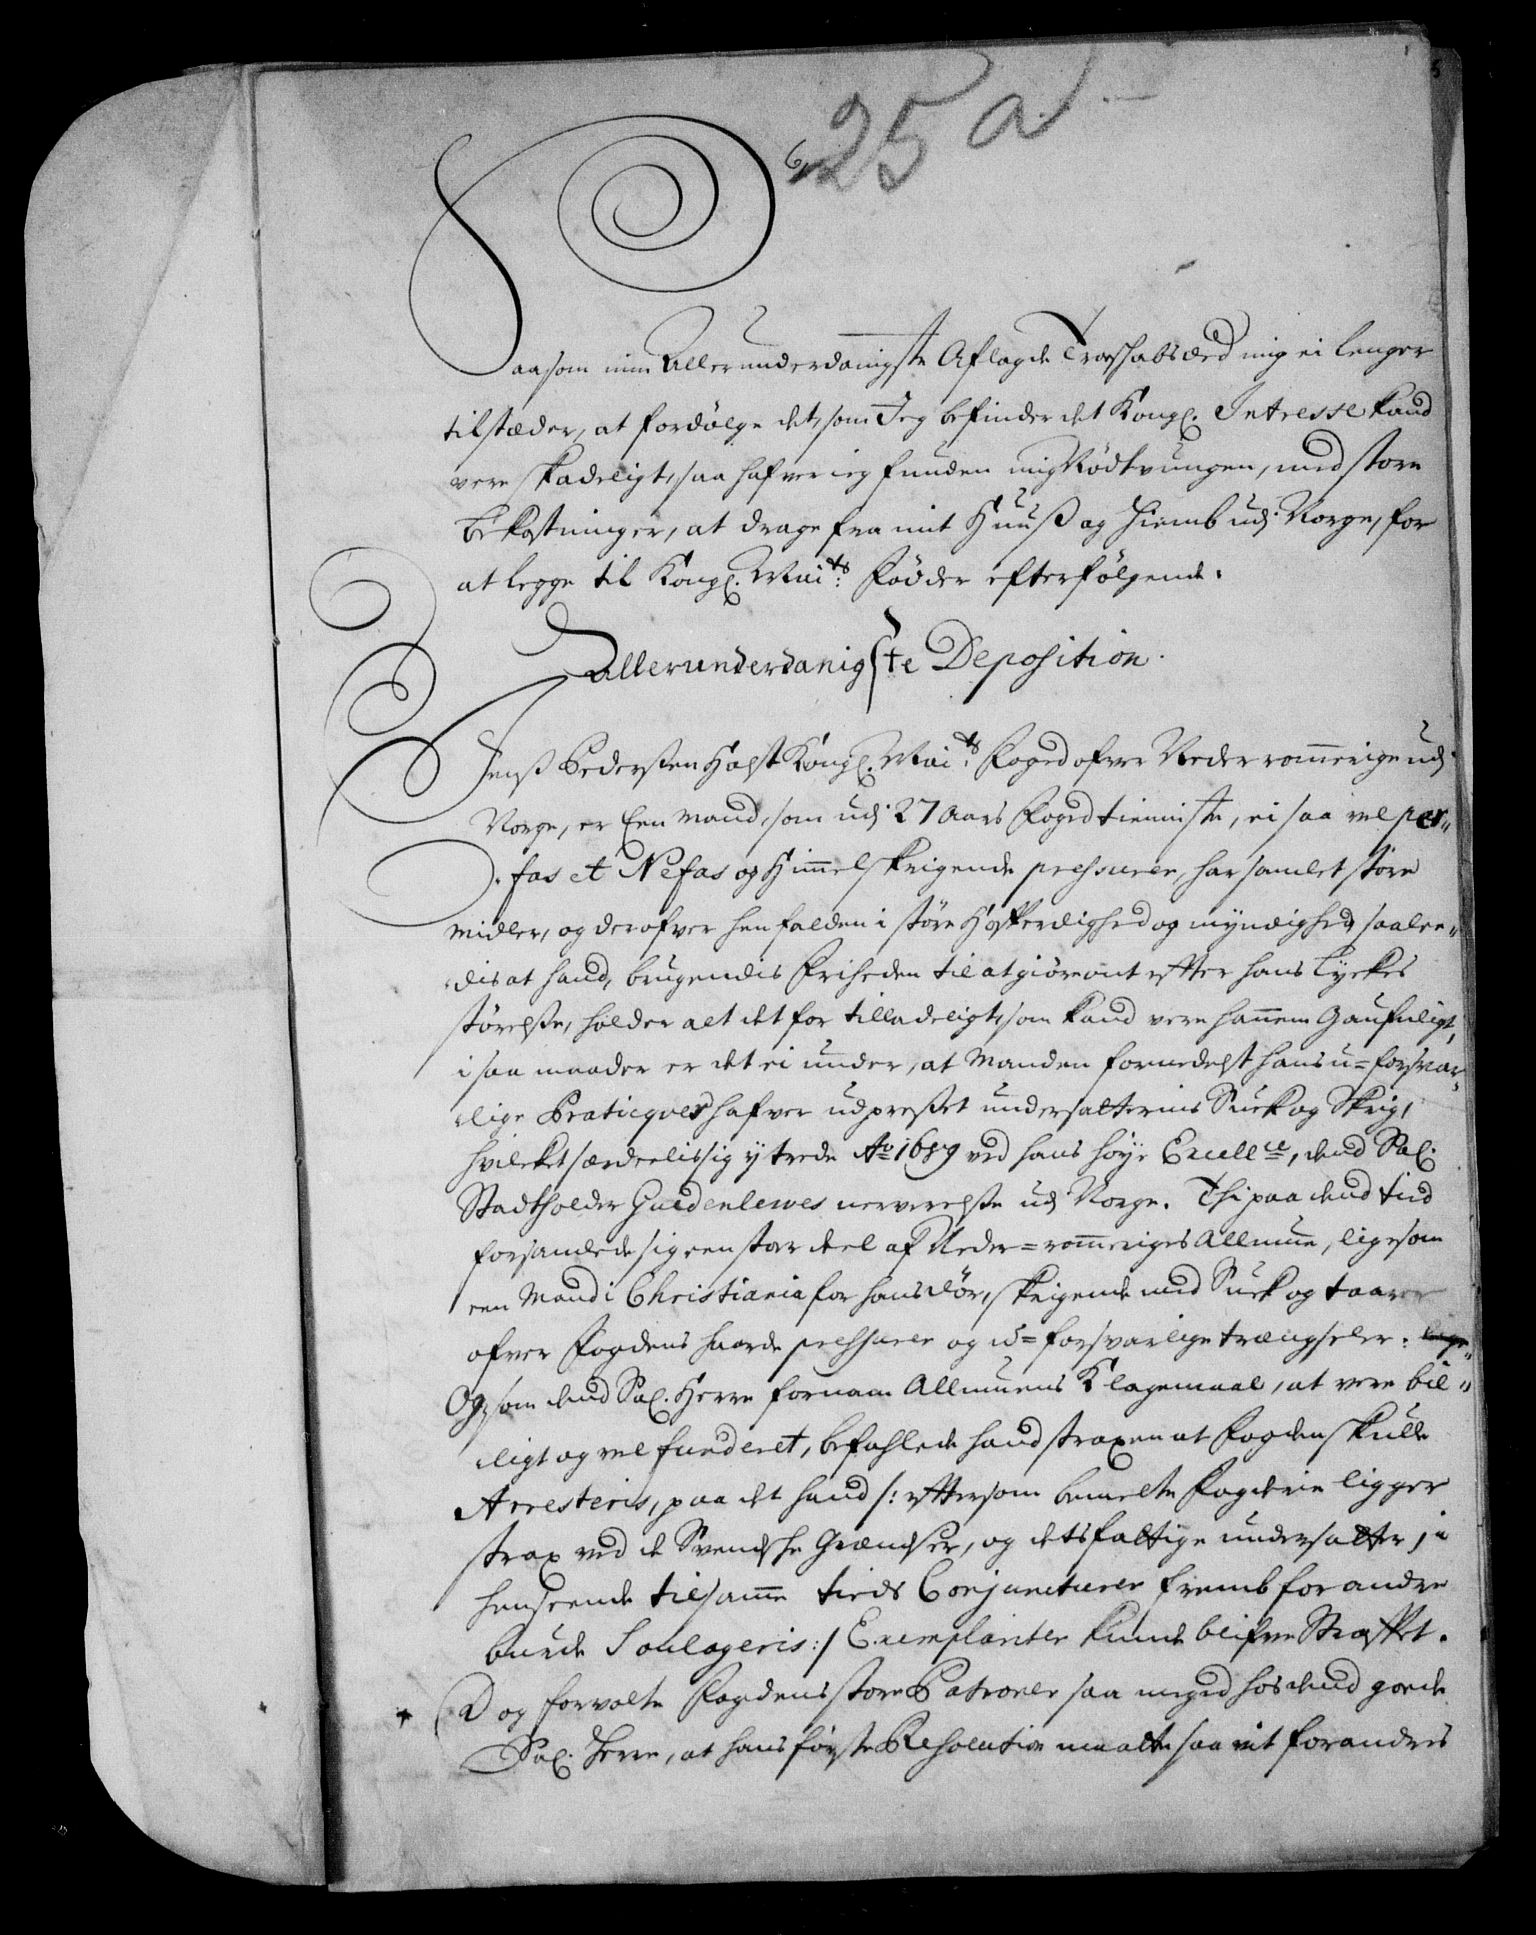 25 a
Saasom min Allerunderdanigste Aflagde Troeskabs Æd mig ei lenger
tilstæder, at fordølge det, som Jeg befinder det Kongl. Intresse kand
være skadeligt, saa hafver ieg funden mig Nødtvungen, med store
bekostninger, at drage fra mit Huuß og Hiemb udj Norge, for
at legge til Kongl. Maits: Fødder efterfølgende.
Allerunderdanigste Deposition.
Jenß Pederßen Holst Kongl. Maits. Foged ofver Nederromerige udj
Norge, er Een mand, som udj 27 Aars Foged tienniste, ei saa vel per"
fas et Nefas og Himmelskrigende pressurer, har samlet store
midler, og derofver henfalden i store Hofferdighed og myndighed, saalee"
dis at hand, brugendis Friheden til at giøre ont effter hans Lyckes
størelße, holder alt det for tilladeligt, som kand vere hannem Gaufnligt,
i saa maader er det ei under, at Manden formedelst hans u=forsvar"
lige Practiqver hafver udpreßet undersatternis Suck og Skrig,
hvilcket særdeelis sig ytrede Ao 1689 ved hans høye Excellce, dend Sal.
Stadtholder Guldenlewes nerverelße udj Norge. Thi paa dend tiid
forsamlede sig een stor deel af Neder=romeriges Allmue, ligesom
een Mand i Christiania for hans dør, skrigende med Suck og taarer
ofver Fogdens haarde pressurer og u=forsvarlige trængseler:
Og som dend Sal. Herre fornam Allmuens Klagemaal, at vere bil"
ligt og vel funderet, befahlede hand straxen at Fogden skulle
Arresteris, paa det hand /: eftersom bemelte Fogderie ligger
strax ved de Svendske Grændser, og dets fattige undersatter j
henseende til samme tiids Conjuncturer fremb for andre
burde Soulageris :/ Exemplariter kunde blifve Straffet.
Dog formaatte Fogdens store Patroner saa meged hos dend goede
Sal. Herre, at hans første Resolution maatte saa vit forandres